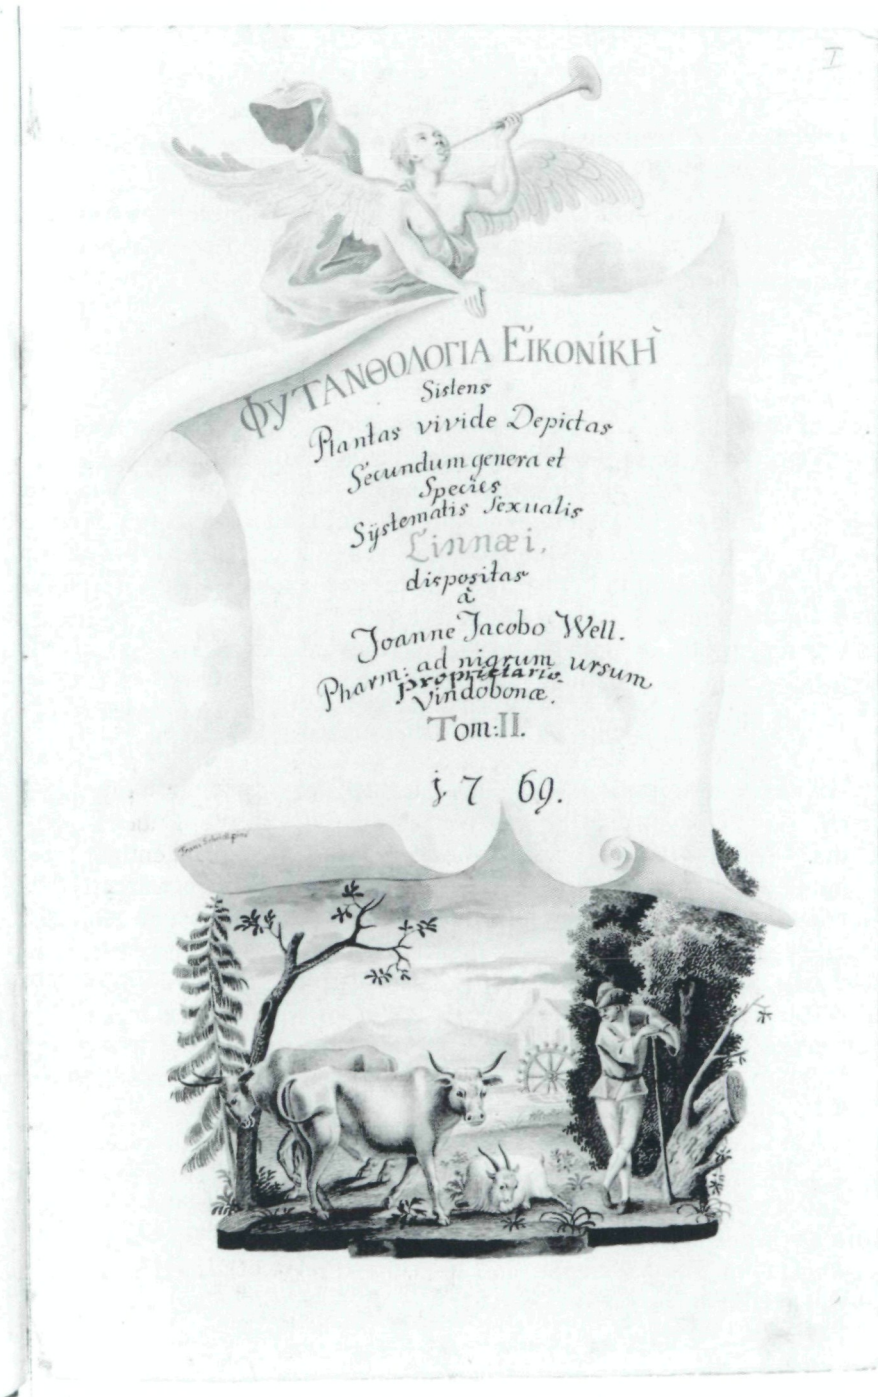 I
ΦΥΤΑΝΘΟΛΟΓΙΑ ΕἰΚΟΝίΚῊ
Sistens
Plantas vivide Depictas
Secundum genera et
Species
Sÿstematis Sexualis
Linnæi,
dispositas
à
Joanne Jacobo Well.
Pharm: ad nigrum ursum
Proprietario
Vindobonæ.
Tom: II.
1769.